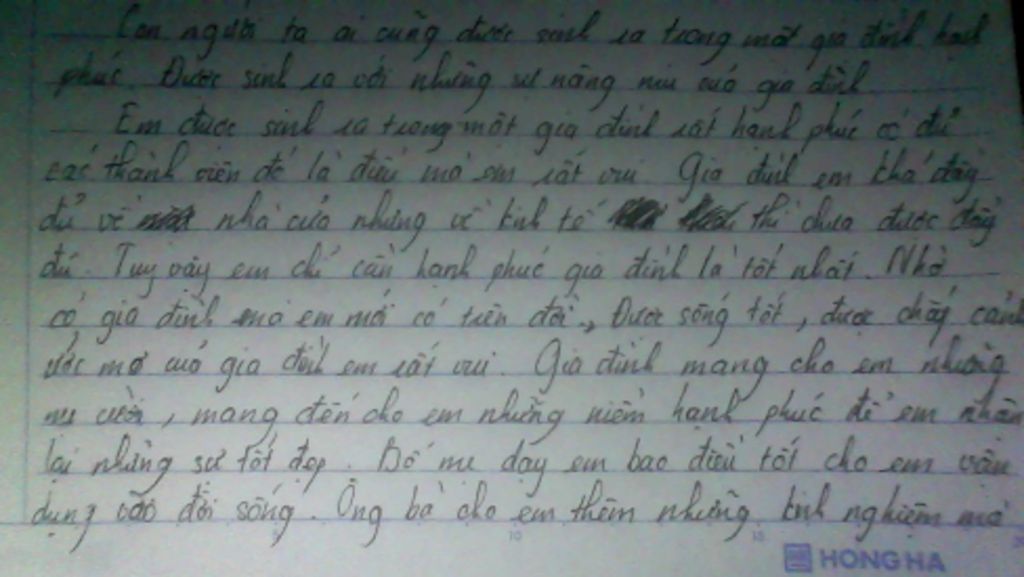 Con người ta ai cũng được sinh ra trong một gia đình hạnh
phúc. Được sinh ra với những sự nâng niu của gia đình.
Em được sinh ra trong một gia đình rất hạnh phúc có đủ
các thành viên đó là điều mà em rất vui. Gia đình em khá đầy
đủ về nhà cửa nhưng về kinh tế thì chưa được đầy
đủ. Tuy vậy em chỉ cần hạnh phúc gia đình là tốt nhất. Nhờ
có gia đình mà em mới có trên đời., Được sống tốt, được chắp cánh
ước mơ của gia đình em rất vui. Gia đình mang cho em những
nụ cười, mang đến cho em những niềm hạnh phúc để em nhận
lại những sự tốt đẹp. Bố mẹ dạy em bao điều tốt cho em vận
dụng vào đời sống. Ông bà cho em thêm những kinh nghiệm mà
5 10 15
HONG HA